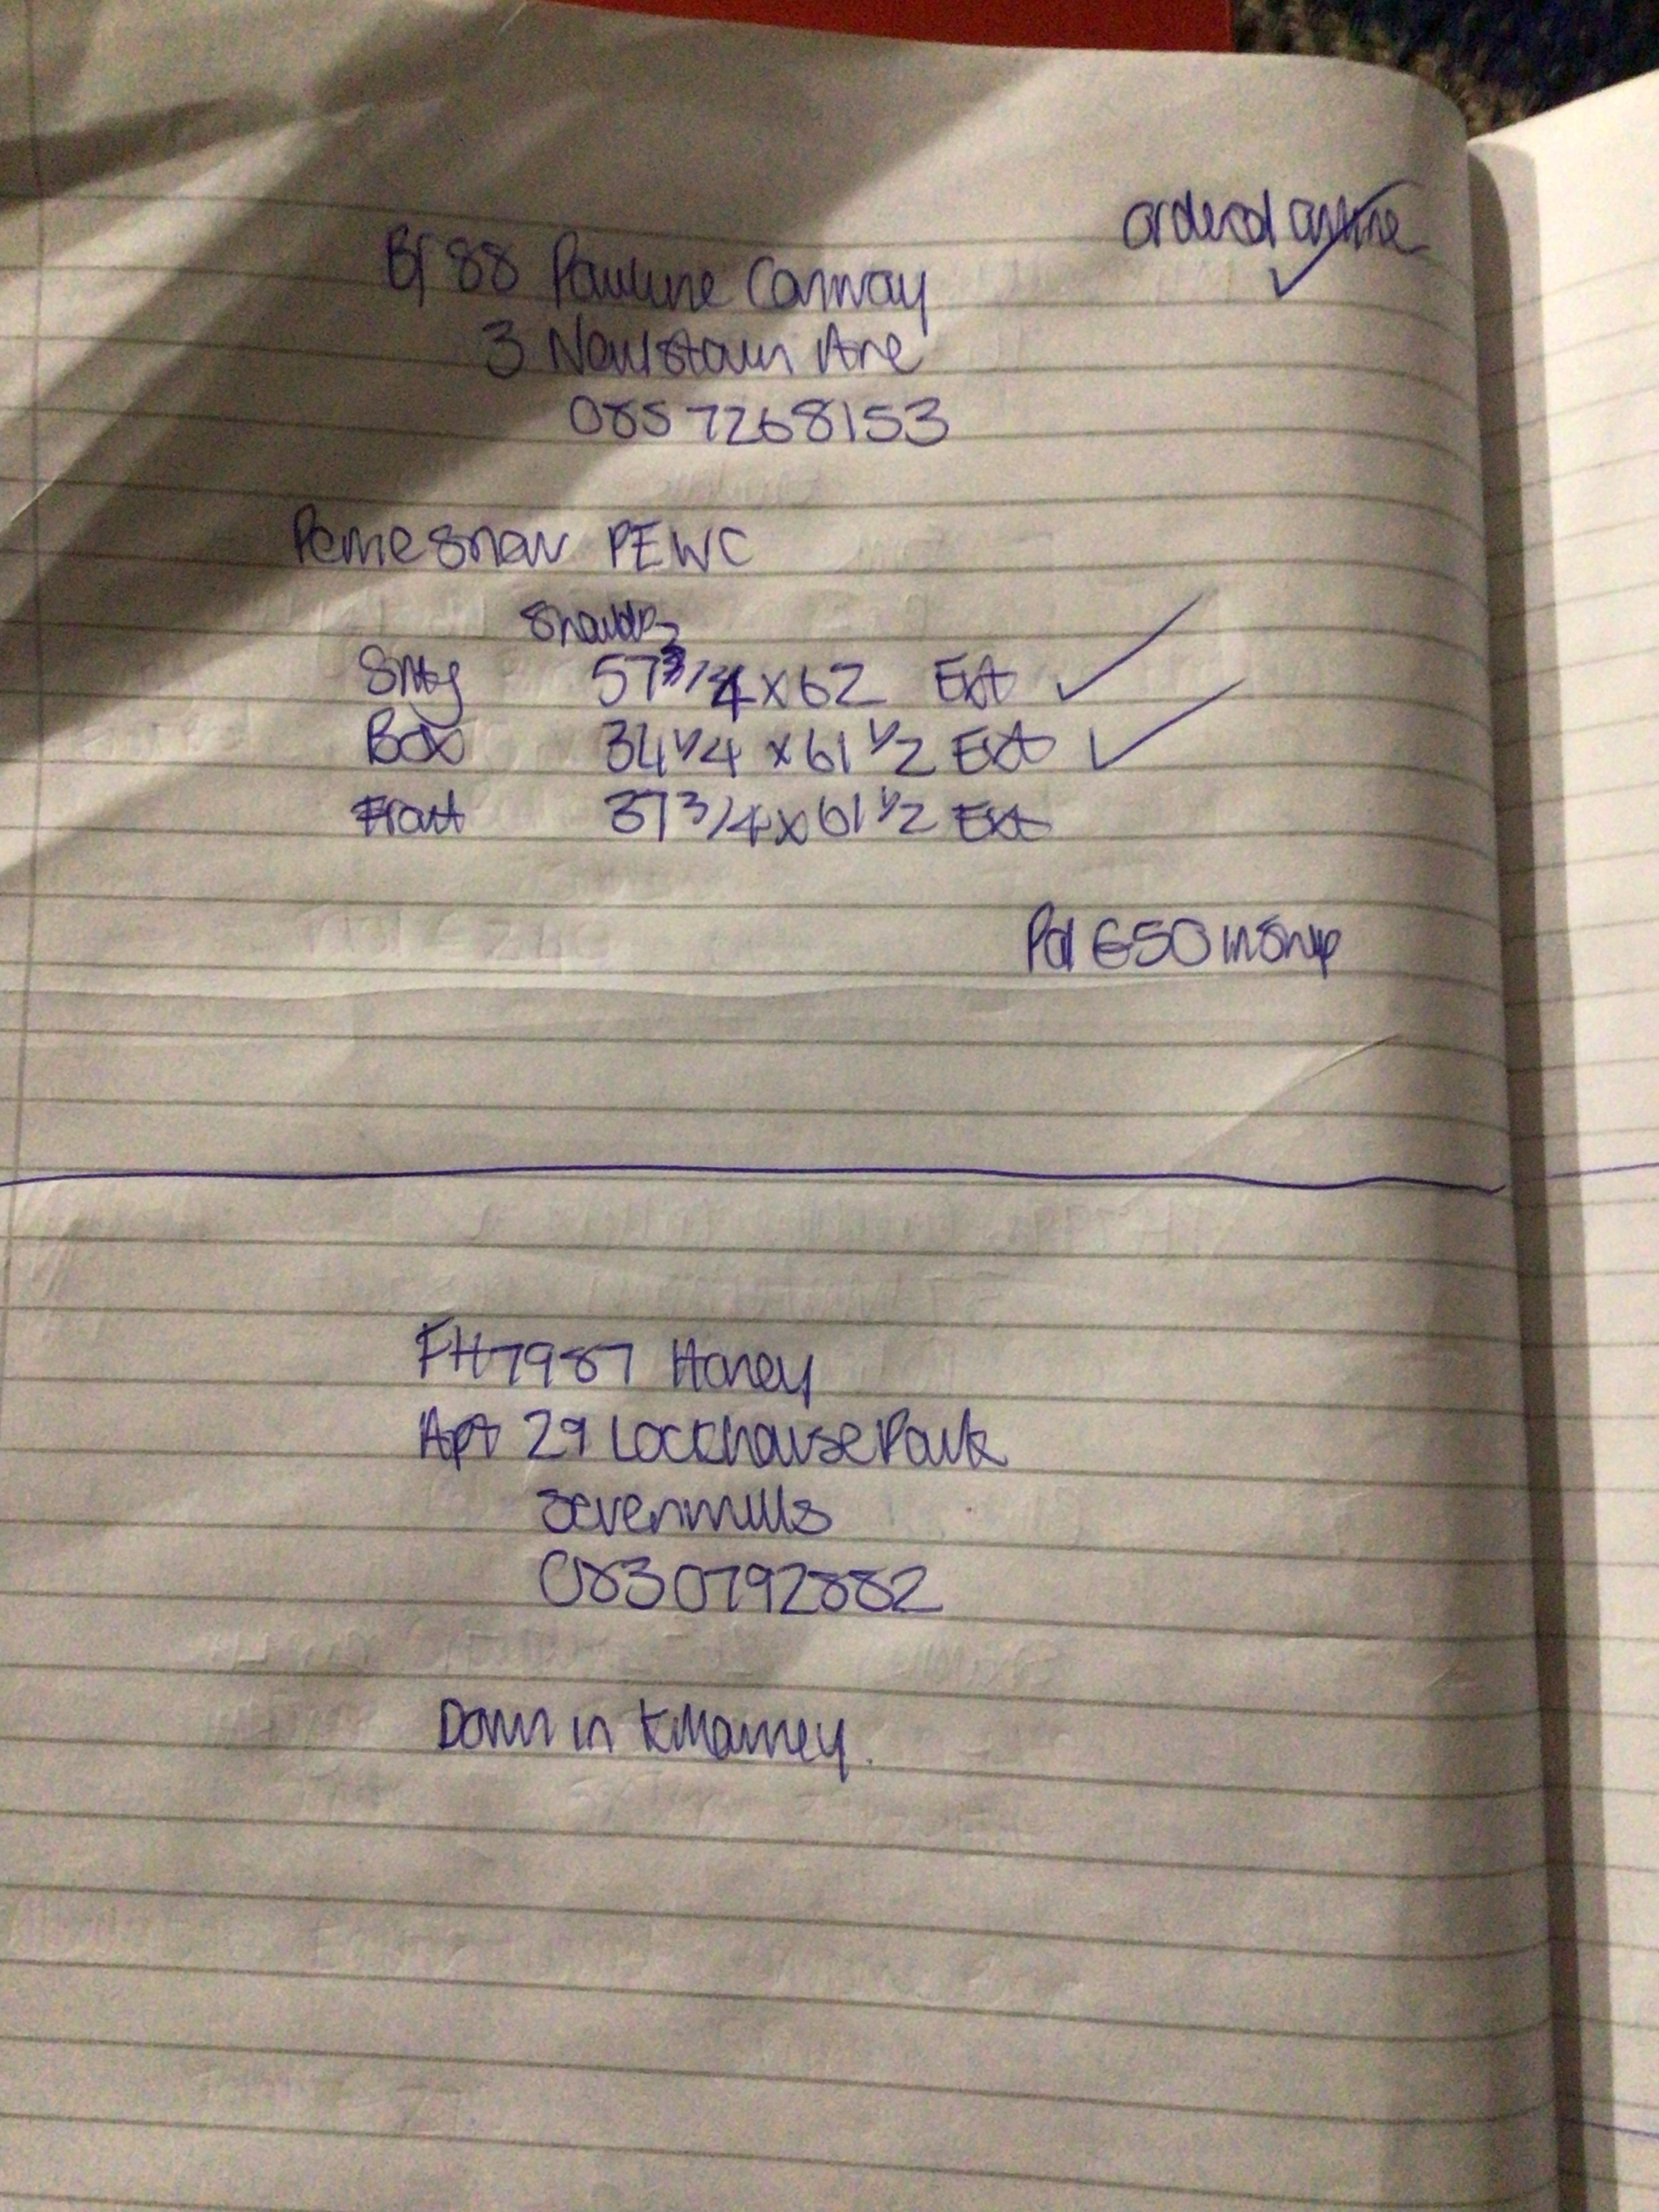 ordered online
Bf 88 Pauline Conway
3 Newtown Ave
085 7268153
snow PEWC
Sittg 57 3/4 x 62 Ext
Box 34 1/4 x 61 1/2 Ext
Front 37 3/4 x 61 1/2 Ext
Pd €50 in Shop
FH7987 Honey
Apt 29 Lockhouse Park
Sevenmills
0830792882
Down in Killarney.